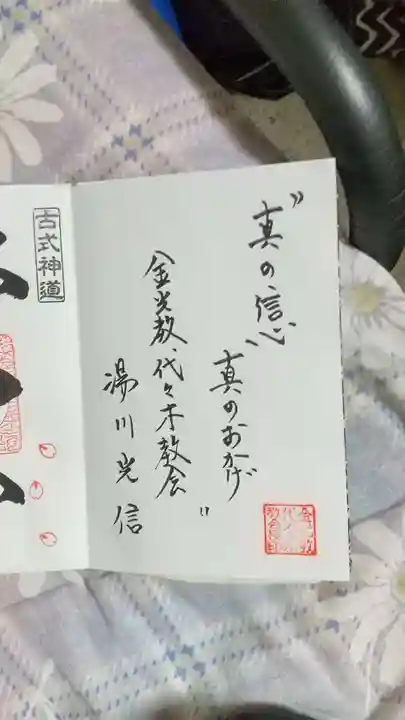 〃真の信心
真のおかげ〃
金光教、代々木教会
湯川光信
古式神道